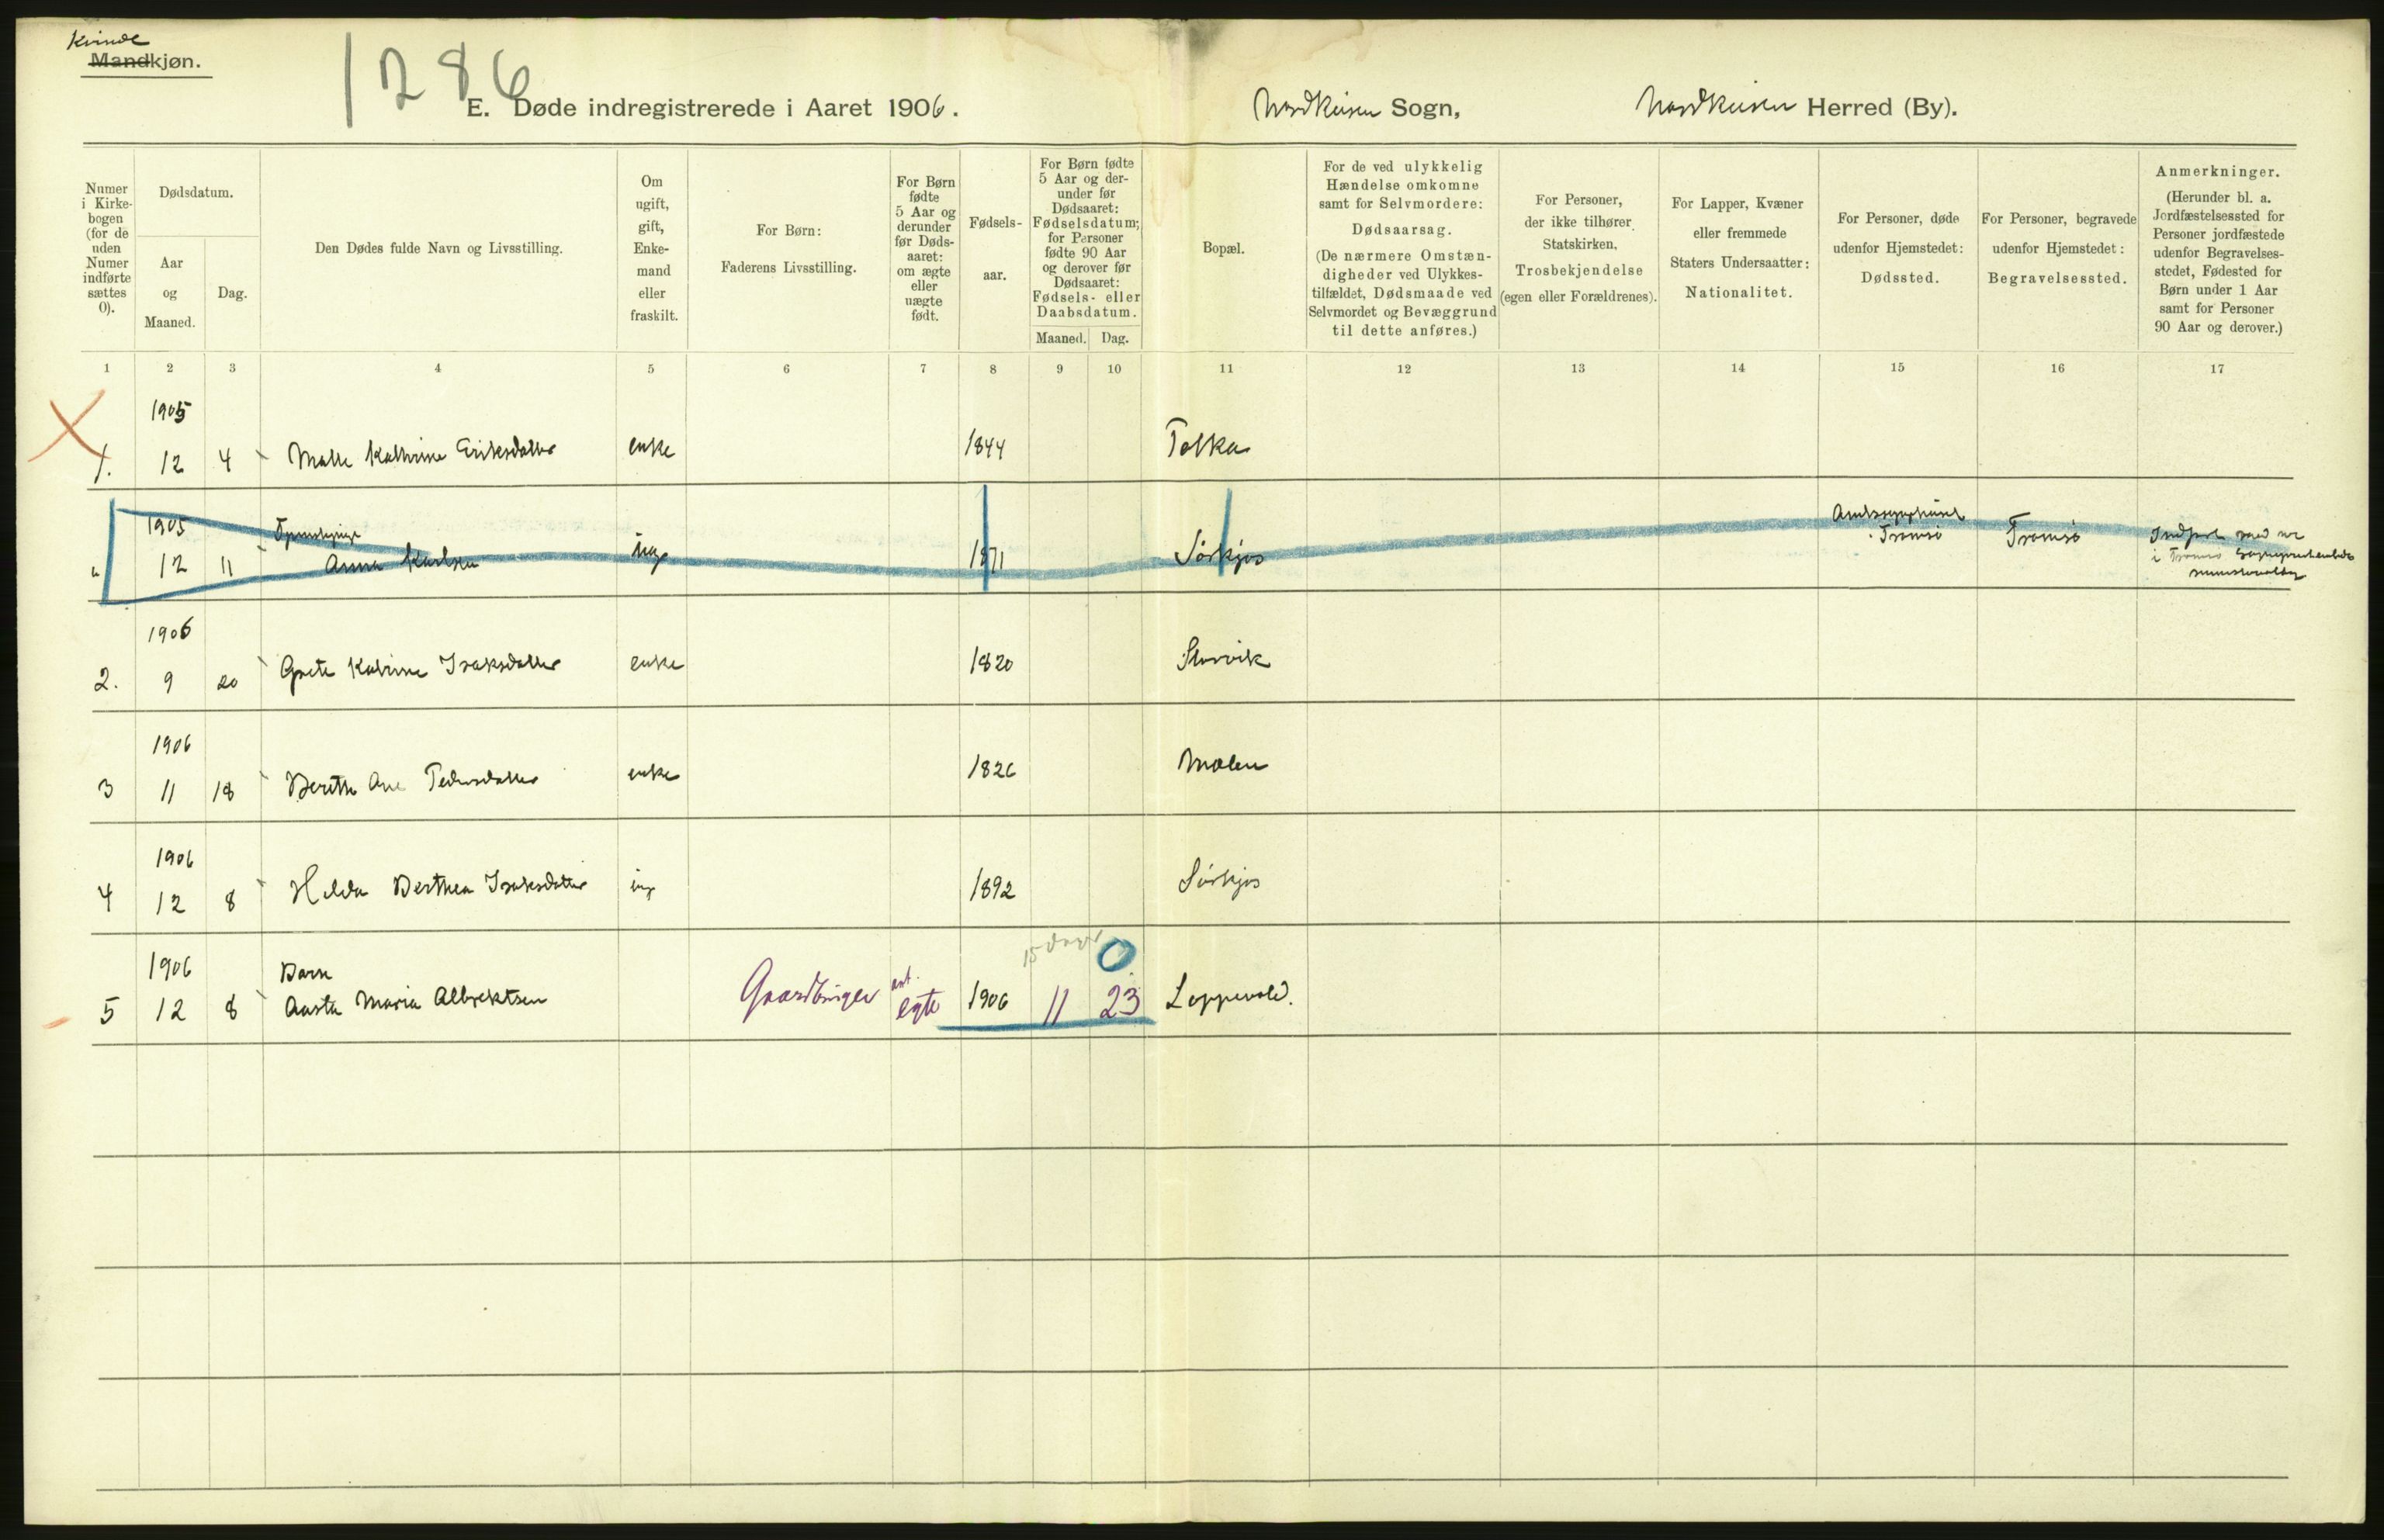 Kvinde
Mandkjøn.
1286
E. Døde indregistrerede i Aaret 1906.
Sogn,
Herred (By).
Numer i Kirke-bogen (for de uden Numer indførte sættes 0).
Dødsdatum.
Aar og Maaned.
Dag.
Den Dødes fulde Navn og Livsstilling.
Om ugift, gift, Enke-mand eller fraskilt.
For Børn:
Faderens Livsstilling.
For Børn fødte 5 Aar og derunder før Døds-aaret: om ægte eller uægte født.
Fødsels-aar.
For Børn fødte 5 Aar og der-under før Dødsaaret: Fødselsdatum; for Personer fødte 90 Aar og derover før Dødsaaret: Fødsels- eller Daabsdatum.
Maaned. Dag.
Bopæl.
For de ved ulykkelig Hændelse omkomne samt for Selvmordere:
Dødsaarsag.
(De nærmere Omstæn-digheder ved Ulykkes-tilfældet, Dødsmaade ved Selvmordet og Bevæggrund til dette anføres.)
For Personer, der ikke tilhører Statskirken,
Trosbekjendelse
(egen eller Forældrenes).
For Lapper, Kvæner eller fremmede Staters Undersaatter:
Nationalitet.
For Personer, døde udenfor Hjemstedet:
Dødssted.
For Personer, begravede udenfor Hjemstedet:
Begravelsessted.
Anmerkninger.
(Herunder bl. a. Jordfæstelsessted for Personer jordfæstede udenfor Begravelses-stedet, Fødested for Børn under 1 Aar samt for Personer 90 Aar og derover.)
1 2 3 4 5 6 7 8 9 10 11 12 13 14 15 16 17
1905
1. 12 4 Malle Kathrine Eriksdatter enke 1844
1905
12 11 Anna Karlsen ug 1871 Sörkjos Tromsö Tromsö
1906
2. 9 20 Grete Katrine Isaksdatter enke 1820 Storvik
1906
3 11 18 Berith Ane Pedersdatter enke 1826
1906
4 12 8 Hilda Berthea Isaksdatter ug 1892 Sörkjos
15 dage 0
1906 Barn
5 12 8 Aasta Maria Albrektsen Gaardbruger egte 1906 11 23 Loppevold.